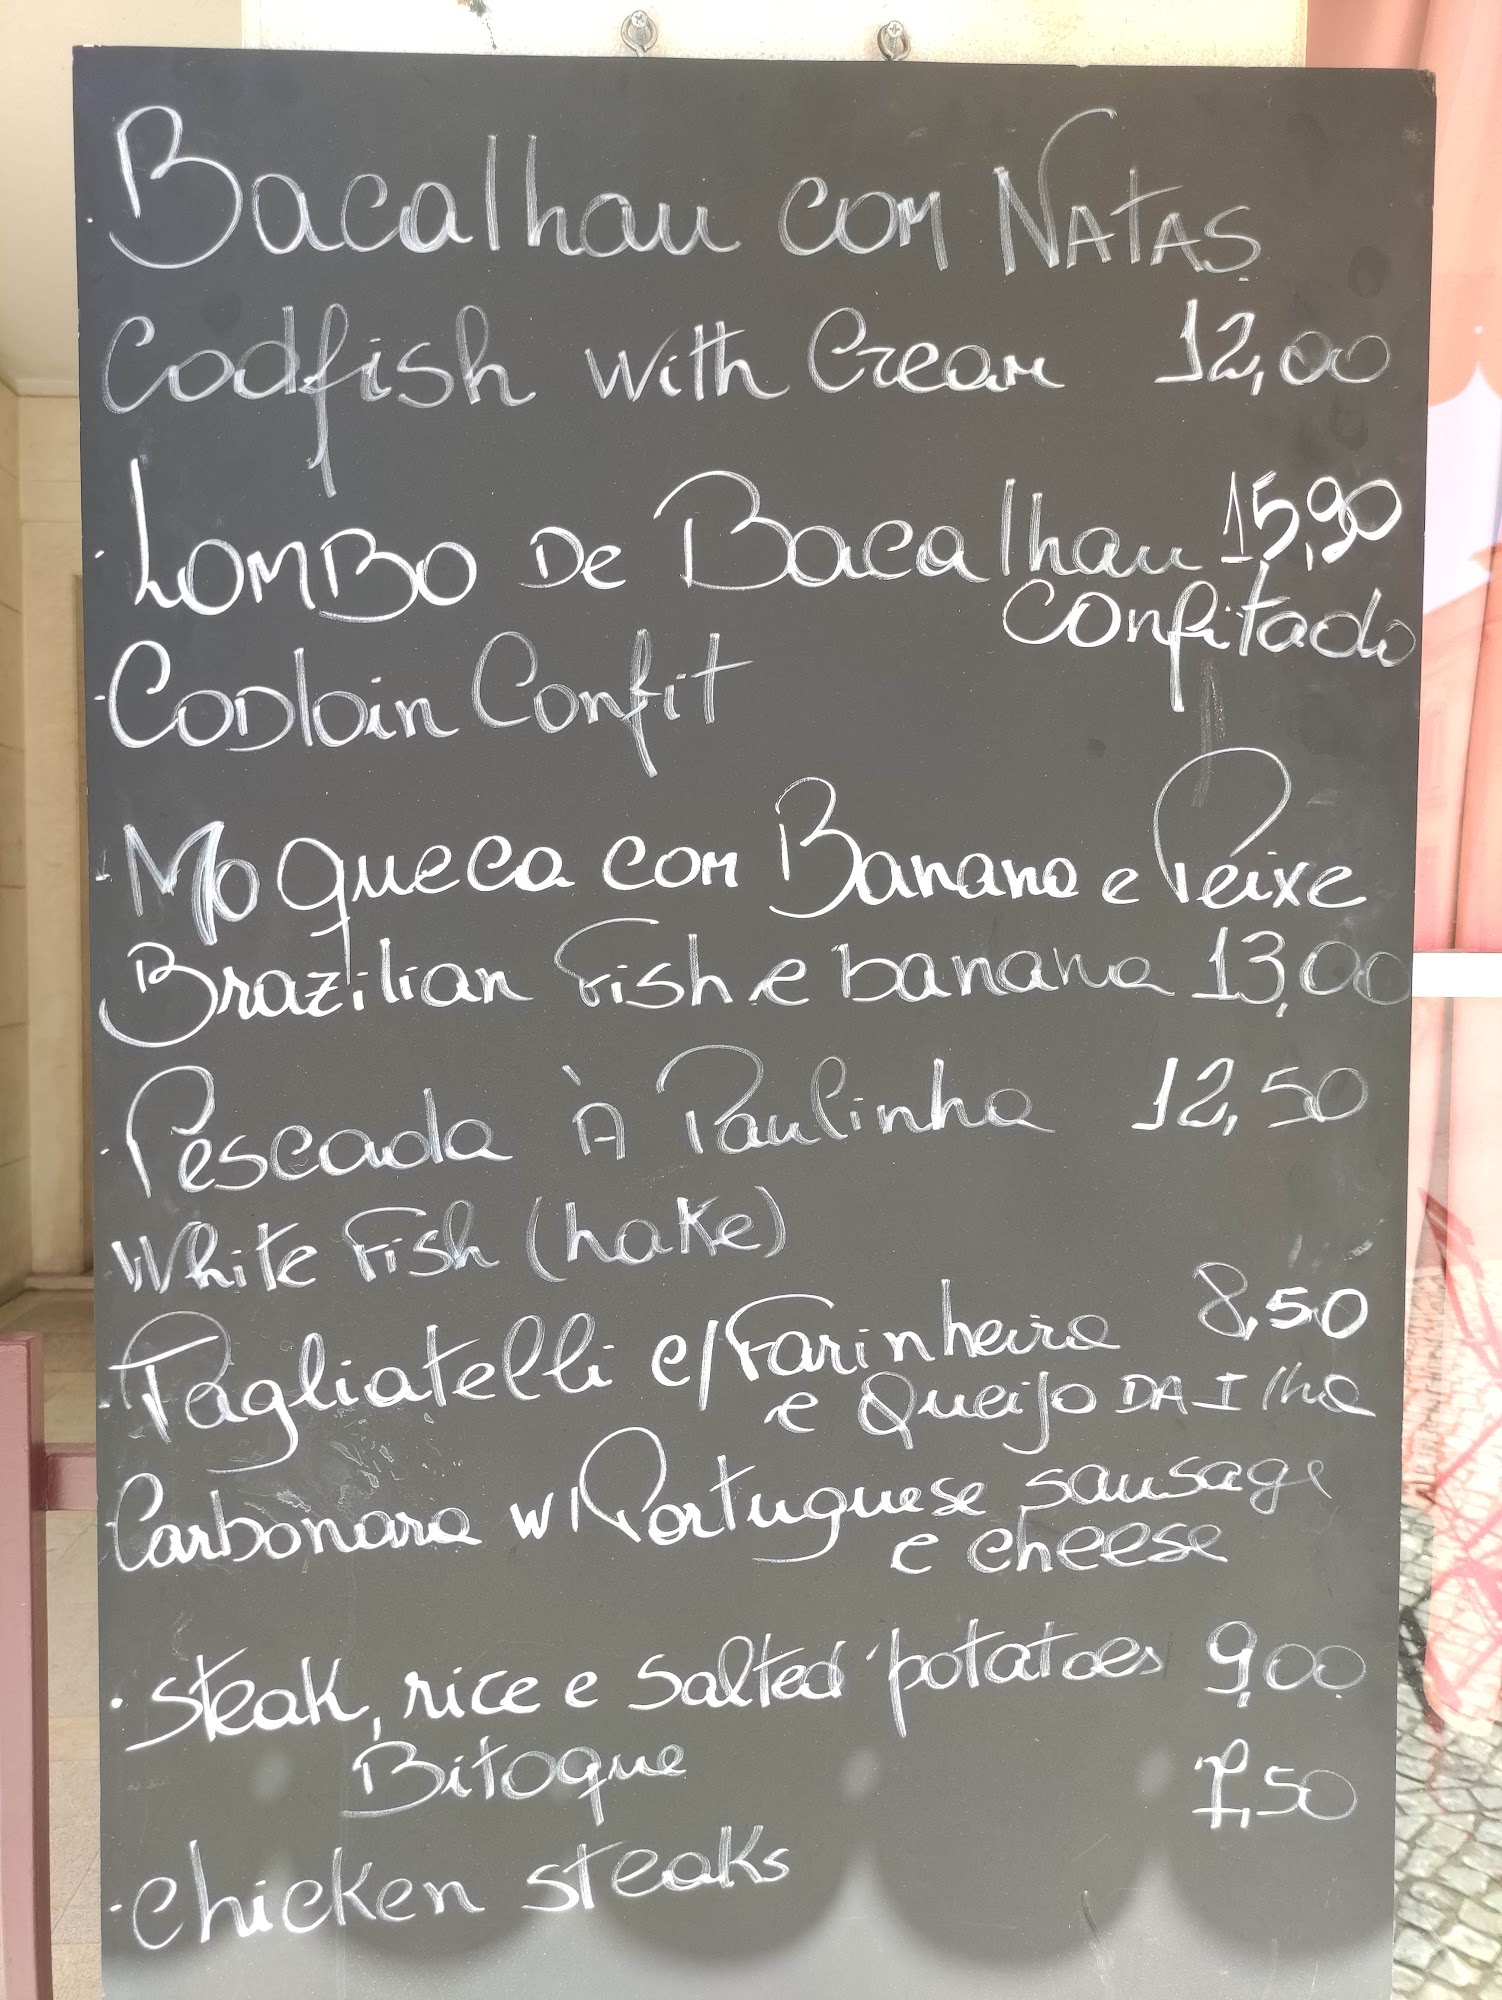 Bacalhau com NATAS
Codfish with Cream 12,00
LOMBO De Bacalhau 15,90
confitado
CODloin Confit
Moqueca com Banana e Peixe
Brazilian Fish e banana 13,00
Pescada À Paulinha 12,50
White Fish (hake)
Tagliatelli c/Farinheira 8,50
e Queijo DA Ilha
Carbonara w/Portuguese sausage
e cheese
Steak, rice e salted potatoes 9,00
Bitoque
7,50
chicken steaks